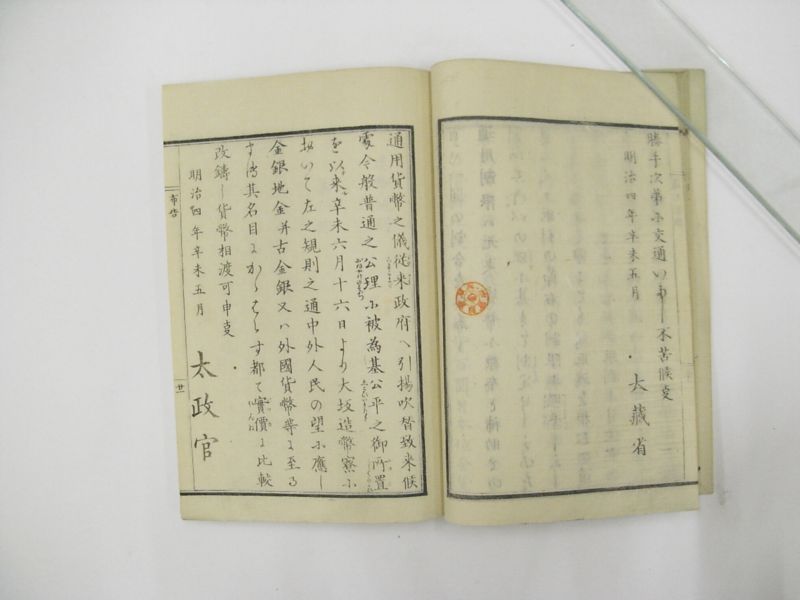 勝手次第ニ交通いたし不苦候事
明治四年辛未五月
大藏省
通用貨幣之儀従来政府ヘ引揚吹替致来候
處今般普通之公理ニ被為基公平之御所置
を以来辛未六月十六日より大坂造幣寮ニ
於いて左之規則之通中外人民の望ニ應し
金銀地金并古金銀又ハ外國貨幣等に至る
まて其名目にかゝはらす都て實價に比較
改鋳し貨幣相渡可申事
明治四年辛未五月
太政官
布告
廿